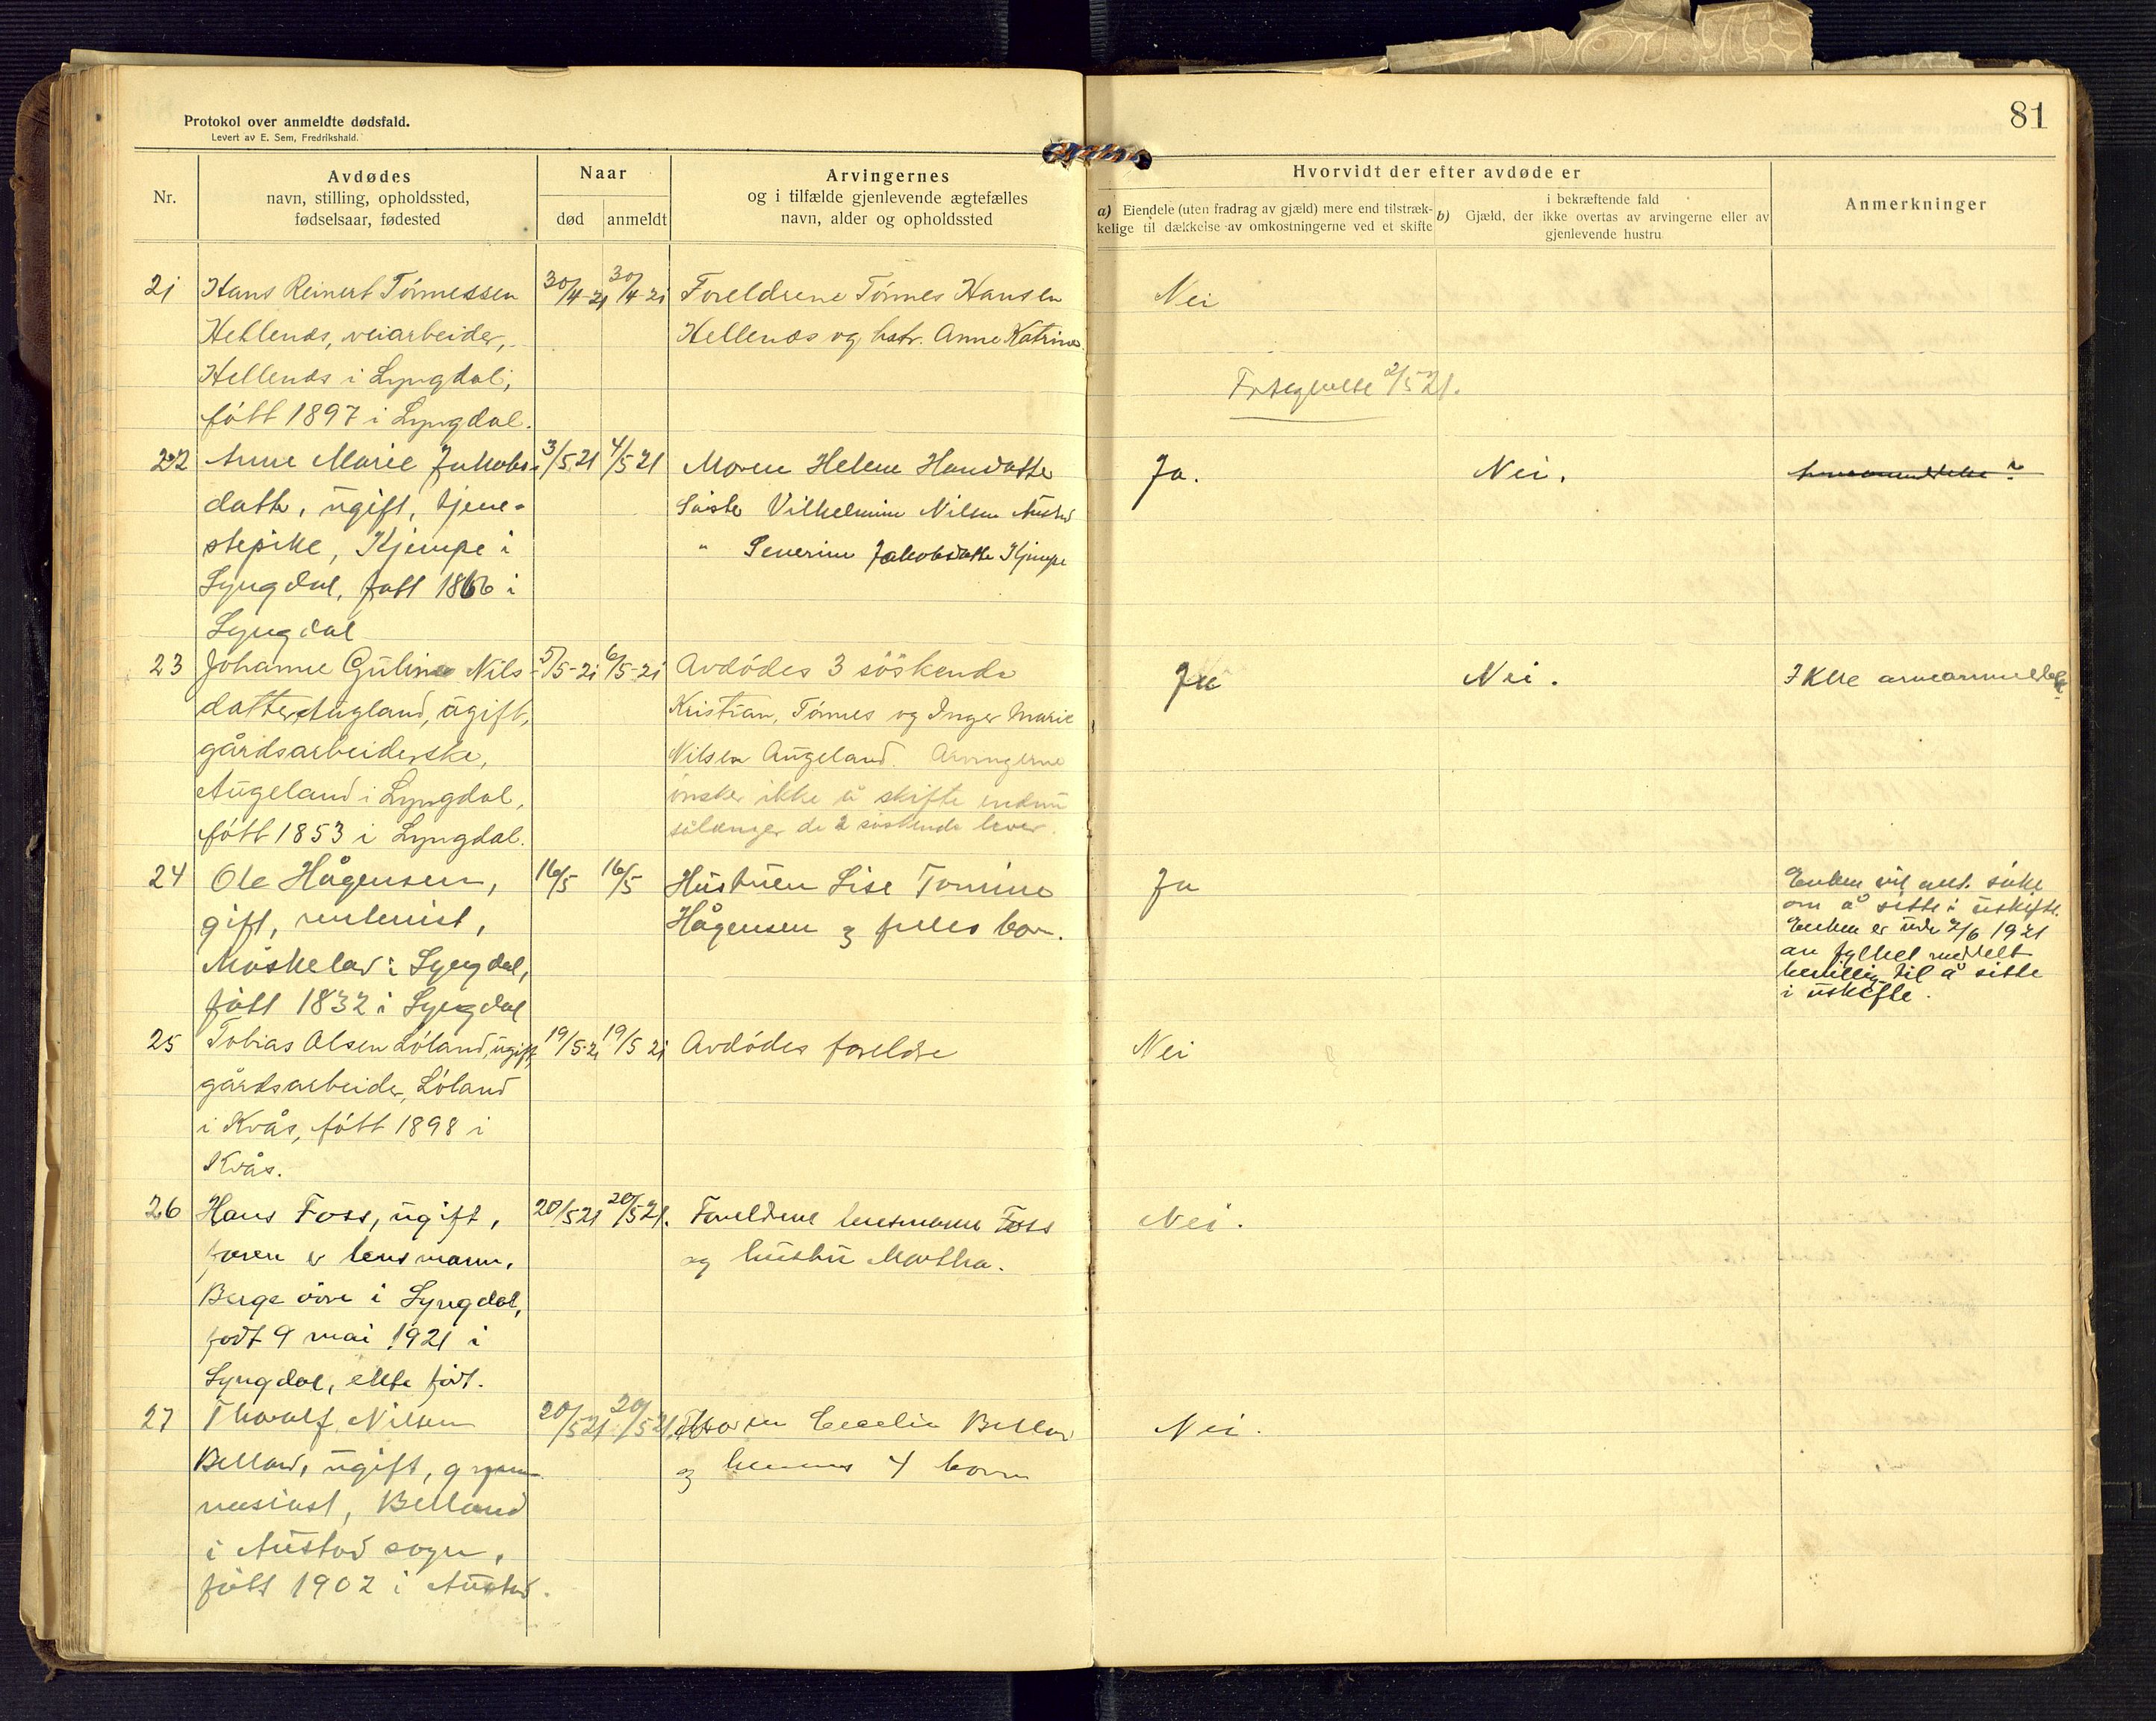 81
Protokol over anmeldte dødsfald.
Levert av E. Sem, Fredrikshald.
Nr.
Avdødes
navn, stilling, opholdssted,
fødselsaar, fødested
Naar
død
anmeldt
Arvingernes
og i tilfælde gjenlevende ægtefælles
navn, alder og opholdssted
Hvorvidt der efter avdøde er
a) Eiendele (uten fradrag av gjæld) mere end tilstræk-
kelige til dækkelse av omkostningerne ved et skifte
i bekræftende fald
b) Gjæld, der ikke overtas av arvingerne eller av
gjenlevende hustru
Anmerkninger
21
Hans Reinert Tönnessen
Hellenes, veiarbeider,
Hellenes i Lyngdal,
fött 1897 i Lyngdal.
30/4-21
30/4-21
Foreldrene Tönnes Hansen
Hellenes og hstr. Anne Katrine
Nei
2/5 21.
22
Anne Marie Jakobs-
datter, ugift, tjene-
stepike, Kjempe i
Lyngdal, født 1866 i
Lyngdal
3/5 21
4/5 21
Moren Helene Hansdatter
Söster Vilhelmine Nilsen Austad
" Severine Jakobsdatter Kjempe
Ja.
Nei.
23
Johanne Guline Nils-
datter Augland, ugift,
gårdsarbeiderske,
Augeland i Lyngdal,
fött 1853 i Lyngdal.
5/5-21
6/5-21
Avdödes 3 söskende
Kristian, Tönnes og Inger Marie
Nilsen Augeland. Arvingerne
önsker ikke å skifte endnu
sålænge de 2 söskende lever.
Ja
Nei.
Ikke
24
Ole Hågensen,
gift, rentenist,
Möskeland i Lyngdal,
fött 1832 i Lyngdal
16/5
16/5
Hustruen Lise Tomine
Hågensen og felles born.
Ja
Enken vil ant. söke
om å sitte i uskifte.
Enken er under 7/6 1921
av fylket meddelt
bevilling til å sitte
i uskifte.
25
Tobias Olsen Löland, ugift,
gårdsarbeider, Löland
i Kvås, fött 1898 i
Kvås.
19/5-21
19/5 21
Avdödes foreldre
Nei
26
Hans Foss, ugift,
faren er lensmann,
Berge övre i Lyngdal,
født 9 mai 1921 i
Lyngdal, ekte født.
20/5 21
20/5 21.
Foreldrene lensmann Foss
og hustru Martha.
Nei.
27
Thoralf Nilsen
Belland, ugift, gym-
nasiast, Belland
i Austad sogn,
fött 1902 i Austad.
20/5 21
20/5 21.
Moren Cecelie Belland
og hennes 4 born
Nei.